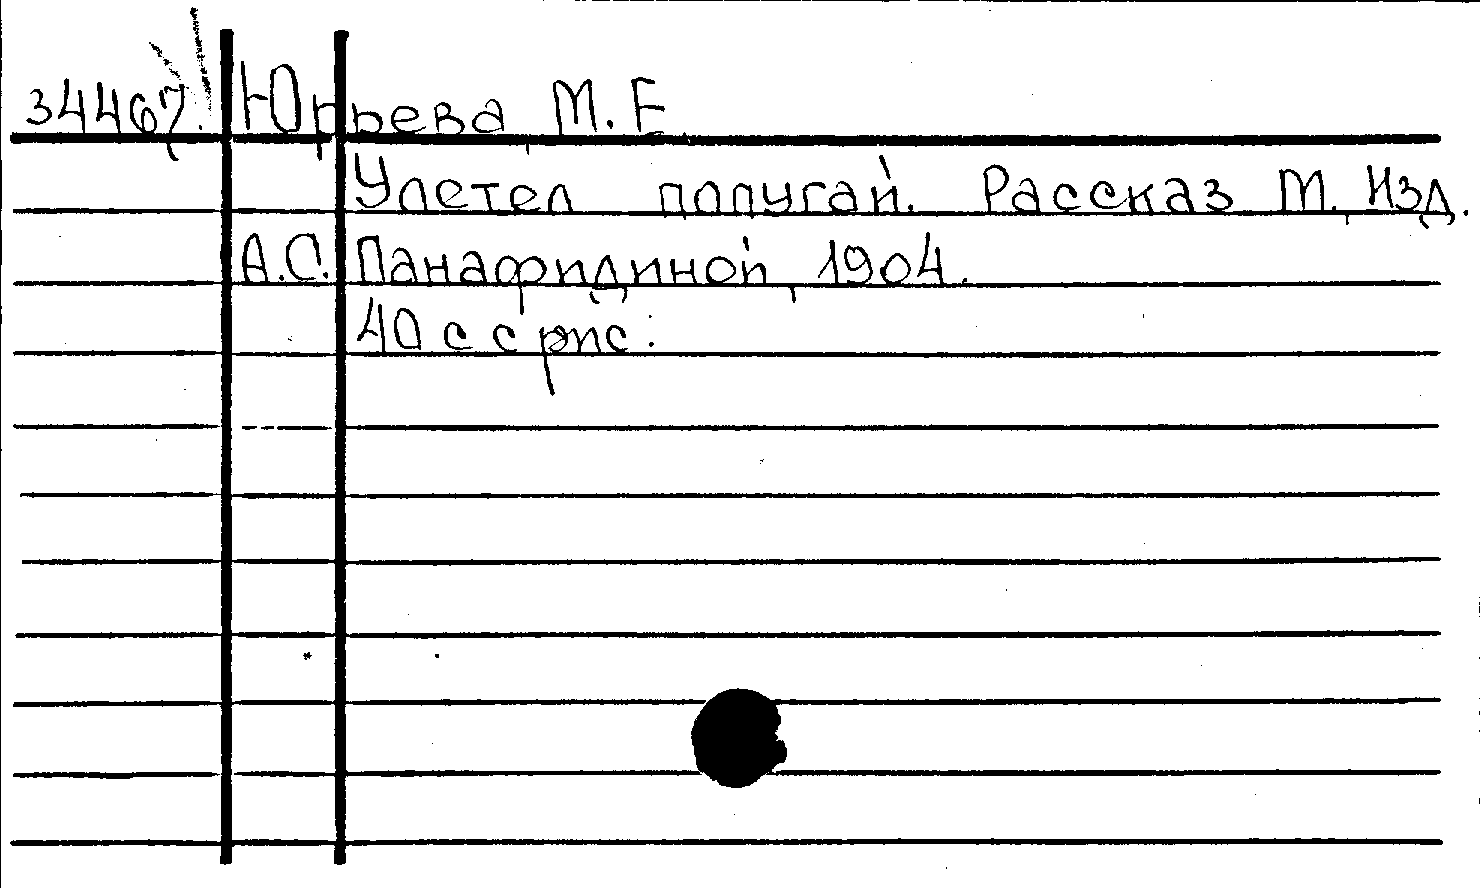 34467. Юрьева, М. Е.
Улетел попугай. Рассказ М., Изд.
А.С. Панафидиной, 1904.
40 с с рис.